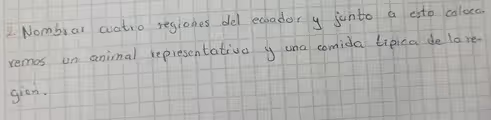 2. Nombrar cuatro regiones del ecuador y junto a esto coloca-
remos un animal representativo y una comida tipica de la re-
gion.